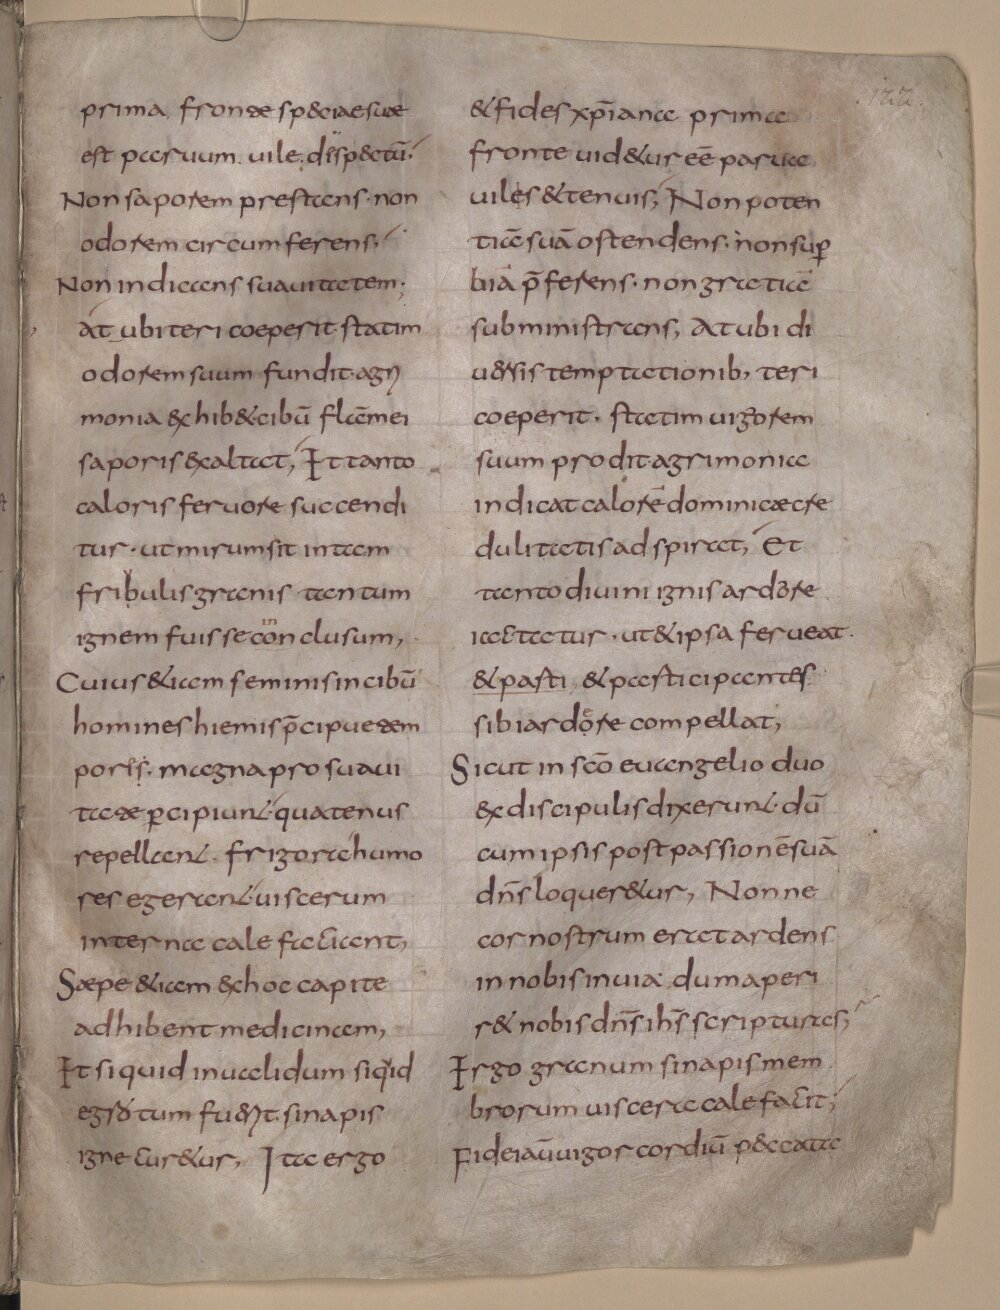 prima fronte sp&ciaesuae
est paruum. uile. dispectū.
Non saporem prestans. non
odorem circumferens.
Non indicans suauitatem.
at ubi teri coeperit statim
odorem suum fundit. agri
monia exhib& cibū flāmei
saporis exaltat, Et tanto
caloris feruore succendi
tur. ut mirum sit intam
fribulis granis tantum
ignem fuisse conclusum,
Cuius &iam feminis in cibū
homines hiemis p̄cipue tem
poris. magna pro suaui
tate ꝑcipiunt. quatenus
repellant. frigora humo
res egerant uiscerum
interna calefaciant,
Saepe &iam ex hoc capite
adhibent medicinam,
Et si quid inualidum siquid
egrotum fuerit. sinapis
igne curetur, Ita ergo
& fides xp̄iana prima
fronte uid&ur eē parua
uiles & tenuis, Non poten
tiā suā ostendens. non suꝑ
biā p̄ferens. non gratiā
subministrans, At ubi di
uersis temptationib, teri
coeperit. statim uigorem
suum prodit. agrimonia
indicat calorē dominicae cre
dulitatis adspirat, Et
tanto diuini ignis ardore
iactatur. ut & ipsa ferueat.
& pasti & pasticipantes
sibi ardore compellat,
Sicut in sc̄o euangelio duo
ex discipulis dixerunt. dū
cum ipsis post passionē suā
dn̄s loquer&ur, Nonne
cor nostrum erat ardens
in nobis in uia dum aperi
r& nobis dn̄s ih̄s scripturas,
Ergo granum sinapis mem
brorum uiscera calefacit,
Fidei aū uigor cordiū peccata